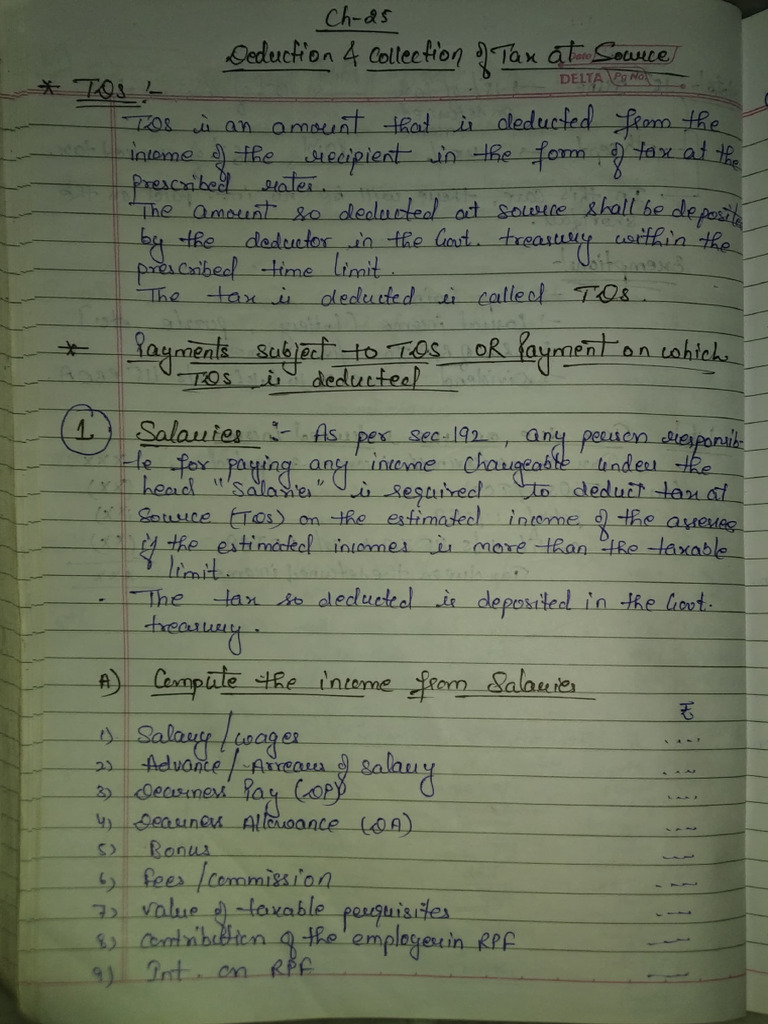 Ch-25
Deduction & Collection of Tax at Source
DELTA Pg No
* TDS :-
TDS is an amount that is deducted from the
income of the recipient in the form of tax at the
prescribed rates.
The amount so deducted at source shall be deposite
by the deductor in the Govt. treasury within the
prescribed time limit.
The tax is deducted is called TDS.
* Payments subject to TDS OR Payment on which
TDS is deducted
1 Salaries :- As per sec-192, any person responsib-
-le for paying any income chargeable under the
head "Salaries" is required to deduct tax at
source (TDS) on the estimated income of the assessee
if the estimated incomes is more than the taxable
limit.
. The tax so deducted is deposited in the Govt.
treasury.
A) Compute the income from Salaries
₹
1) Salary/wages ....
2) Advance/Arrears of salary ....
3) Dearness Pay (DP) ....
4) Dearness Allowance (DA) ....
5) Bonus ....
6) Fees/commission ....
7) Value of taxable perquisites ....
8) Contribution of the employer in RPF ....
9) Int. on RPF ....